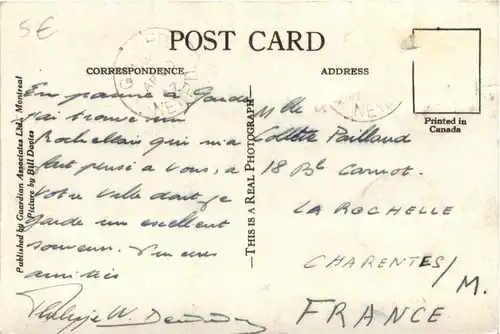 5€
POST CARD
CORRESPONDENCE
ADDRESS
Printed in
Canada
Published by Guardian Associates Ltd., Montreal
Picture by Bill Davies
THIS IS A REAL PHOTOGRAPH
En panne à Gander
j'ai trouvé un
Rochellais qui m'a
fait pensé à vous, à
votre ville dont je
garde un excellent
souvenir.
amitiés
Philippe W.
Mlle
Colette Paillaud
18 Bd Carnot.
LA ROCHELLE
CHARENTES/M.
FRANCE